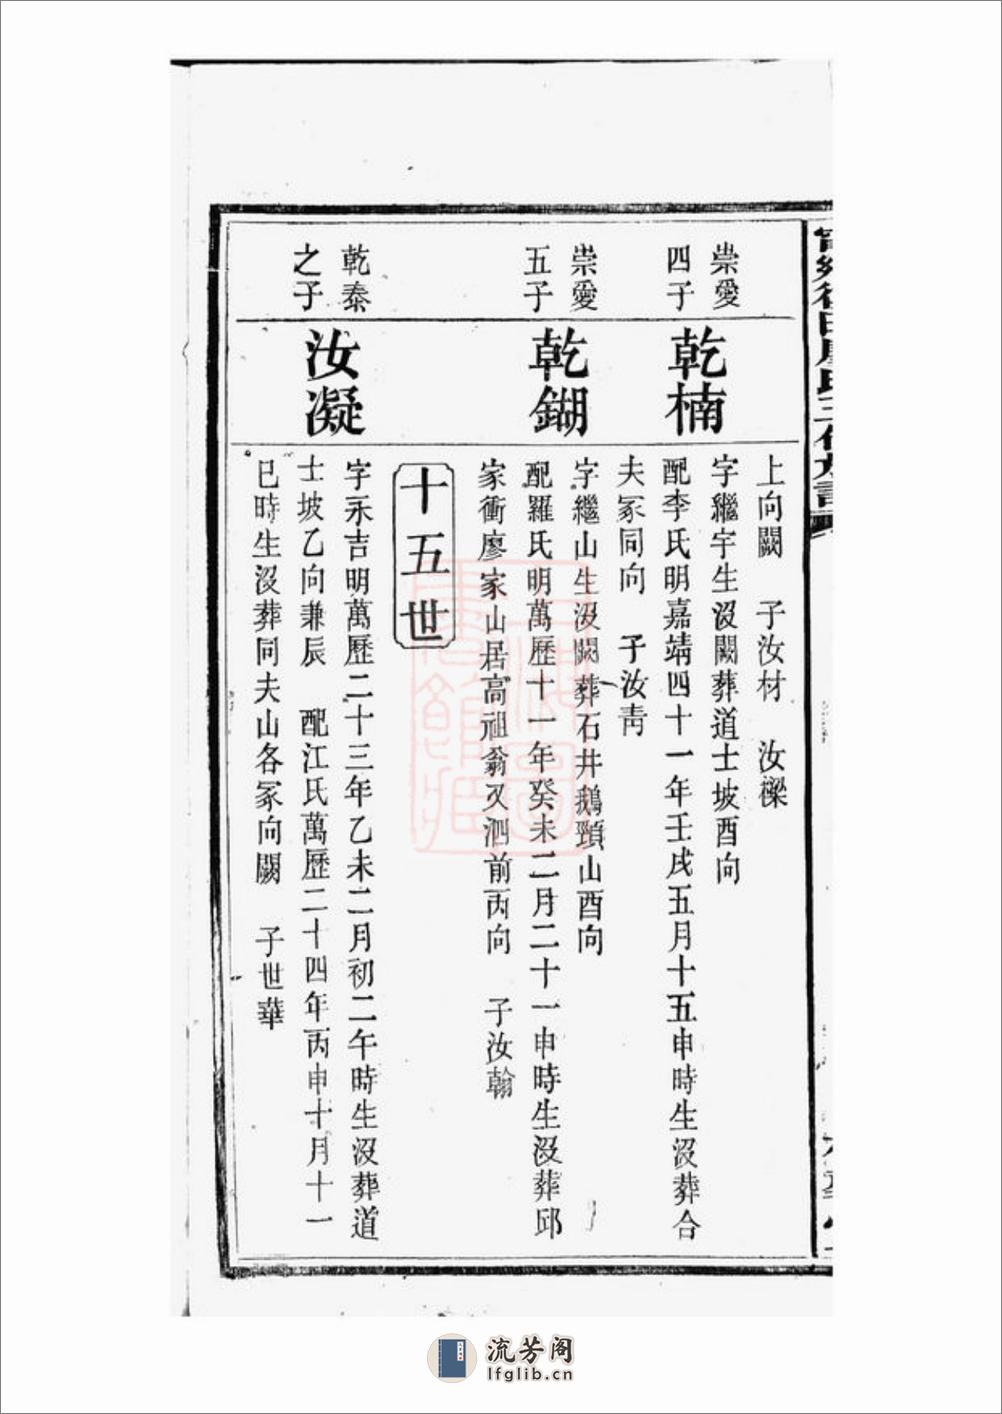 上向闕　子汝材　汝樑
崇愛
四子
乾楠
字繼宇生沒闕葬道士坡酉向
配李氏明嘉靖四十一年壬戌五月十五申時生沒葬合
夫冢同向　子汝靑
崇愛
五子
乾鍸
字繼山生沒闕葬石井鵝頸山酉向
配羅氏明萬歷十一年癸未二月二十一申時生沒葬邱
家衝廖家山居高祖翁又泗前丙向　子汝翰
十五世
乾泰
之子
汝凝
字永吉明萬歷二十三年乙未二月初二午時生沒葬道
士坡乙向兼辰　配江氏萬歷二十四年丙申十月十一
巳時生沒葬同夫山各冢向闕　子世華
流芳阁
lfglib.cn